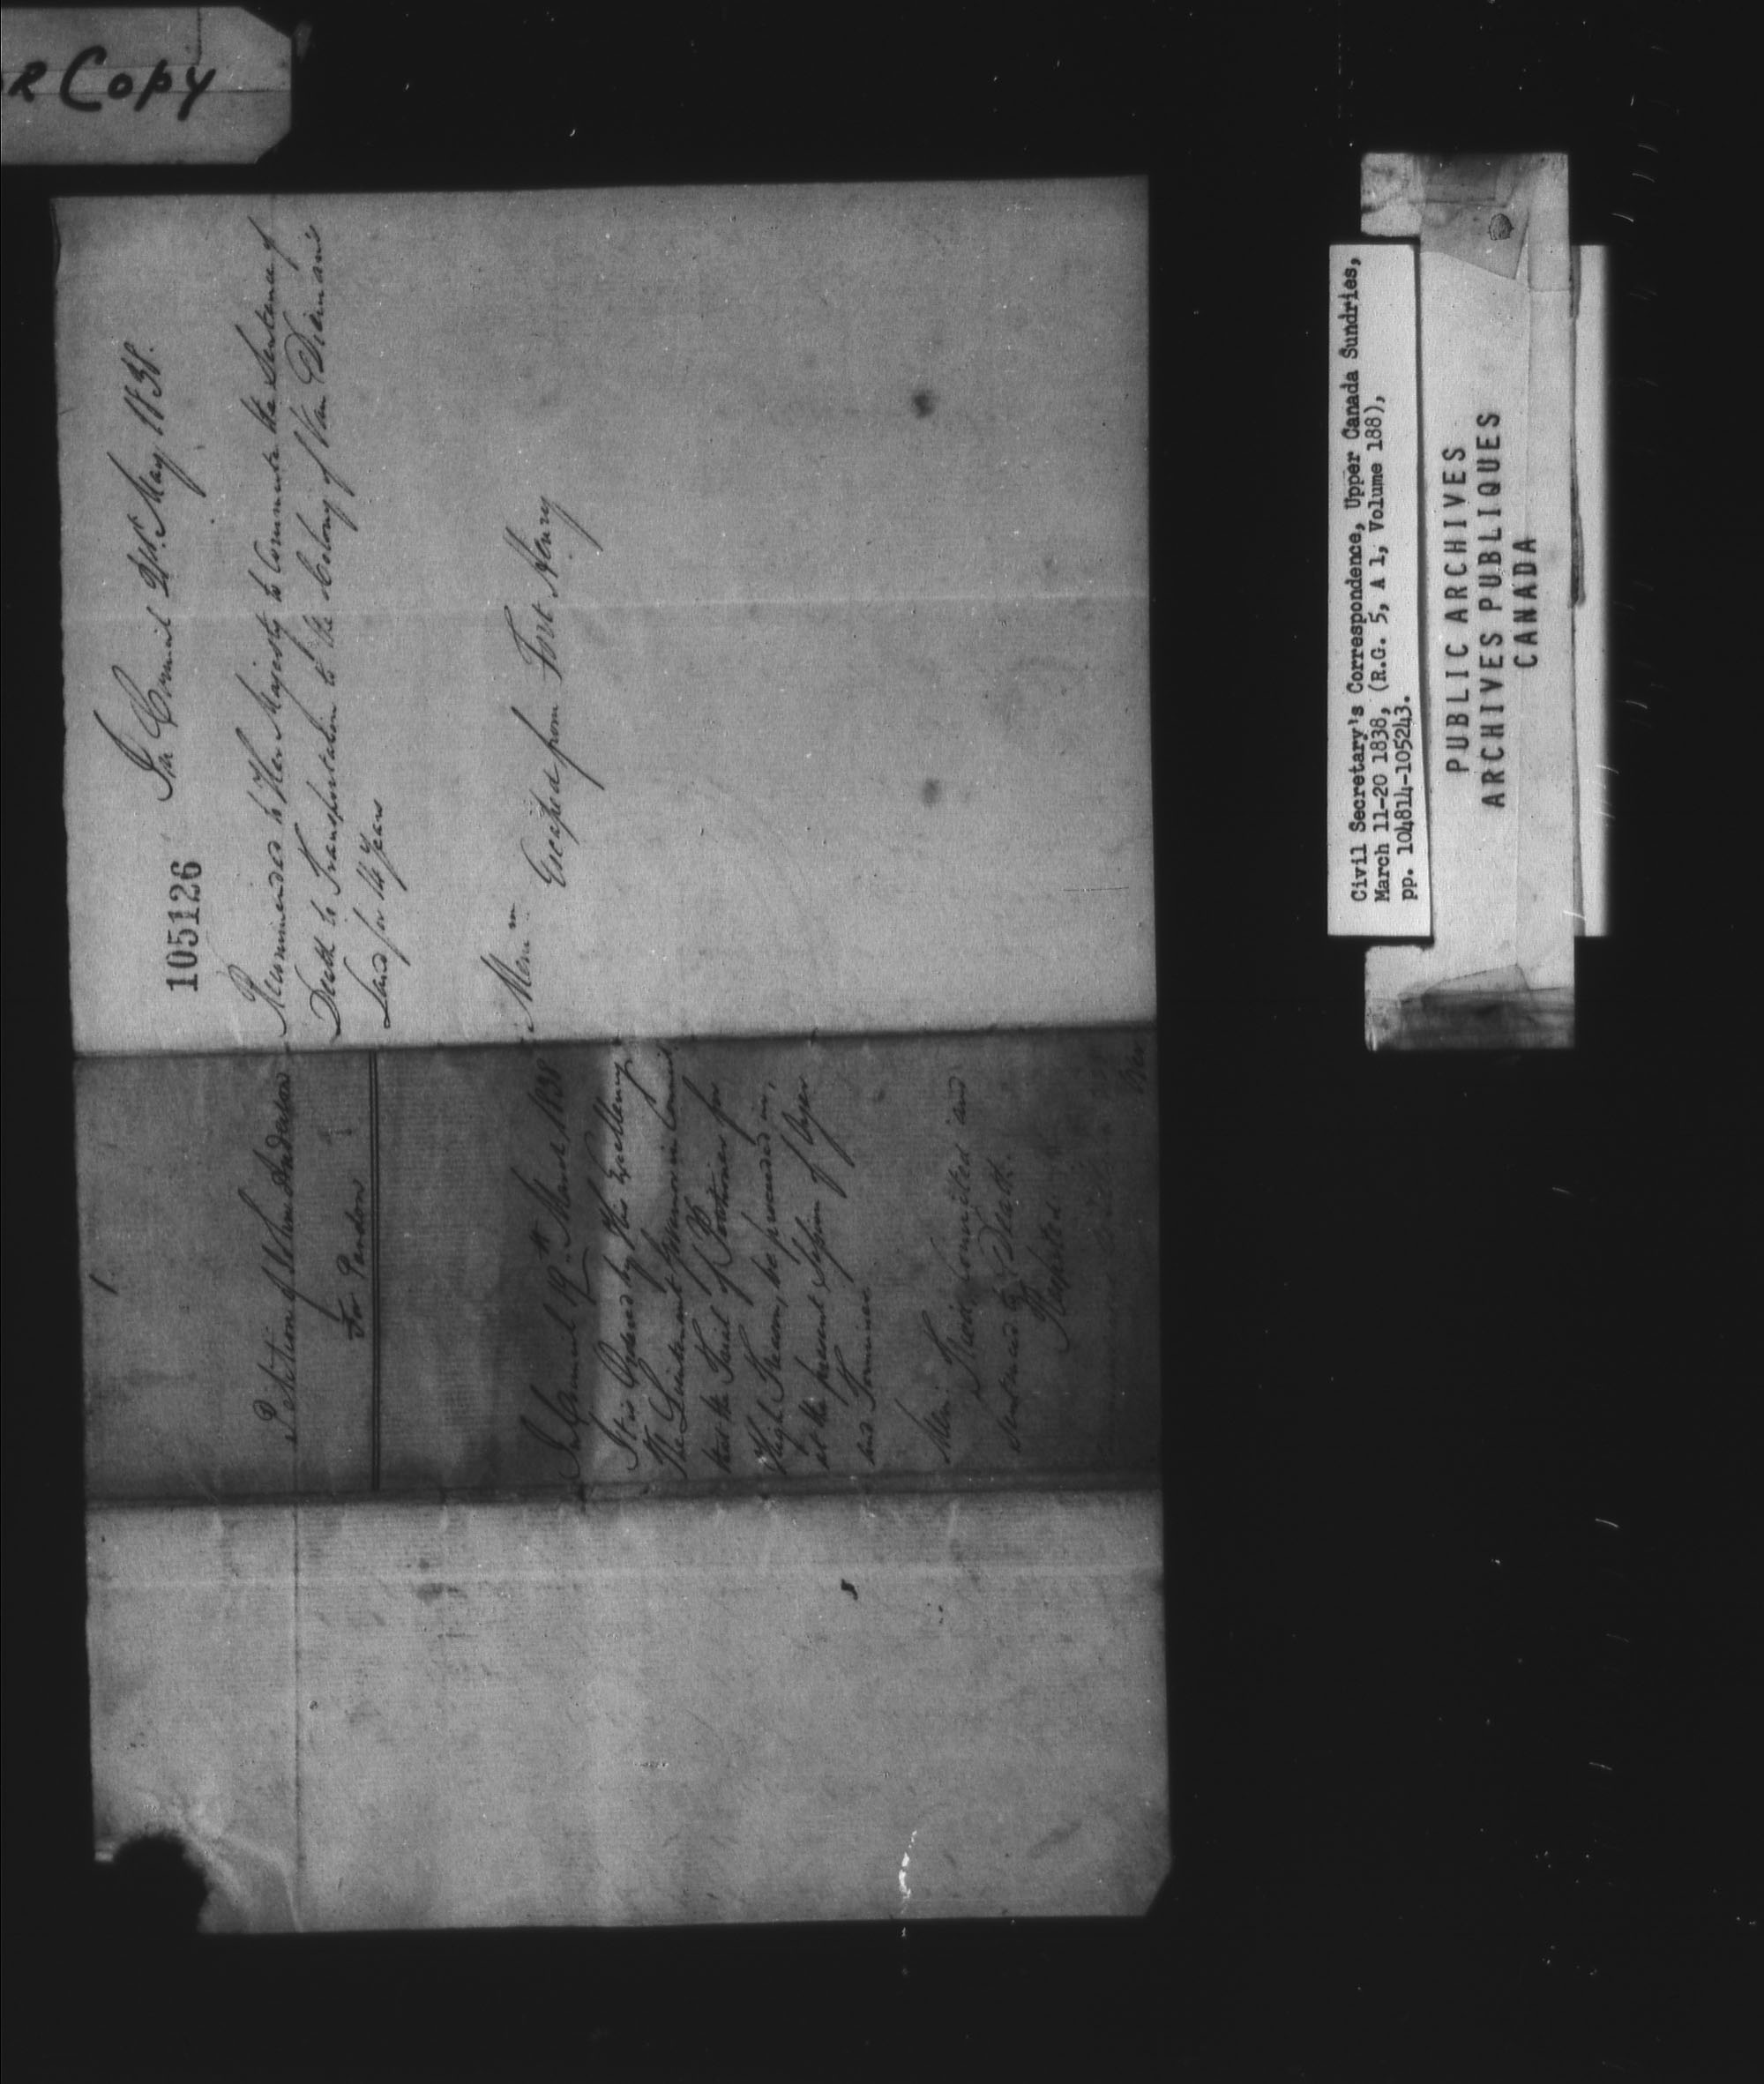 R Copy
1.
Petition of John Anderson
For Pardon
In Council 19th March 1838
It is Ordered by His Excellency
The Lieutenant Governor in Council
that the Trial of Petitioner for
High Treason, be proceeded in,
at the present Session of Oyer
and Terminer
Mem: Tried, Convicted and
Sentenced to Death.
Respited
105126
In Council 21st. May 1838.
Recommended to Her Majesty to Commute the Sentence of
Death to Transportation to the Colony of Van Diemans
Land for Years
Mem.m
Escaped from Fort Henry
Civil Secretary's Correspondence, Upper Canada Sundries,
March 11-20 1838, (R.G. 5, A 1, Volume 188),
pp. 104814-105243.
PUBLIC ARCHIVES
ARCHIVES PUBLIQUES
CANADA